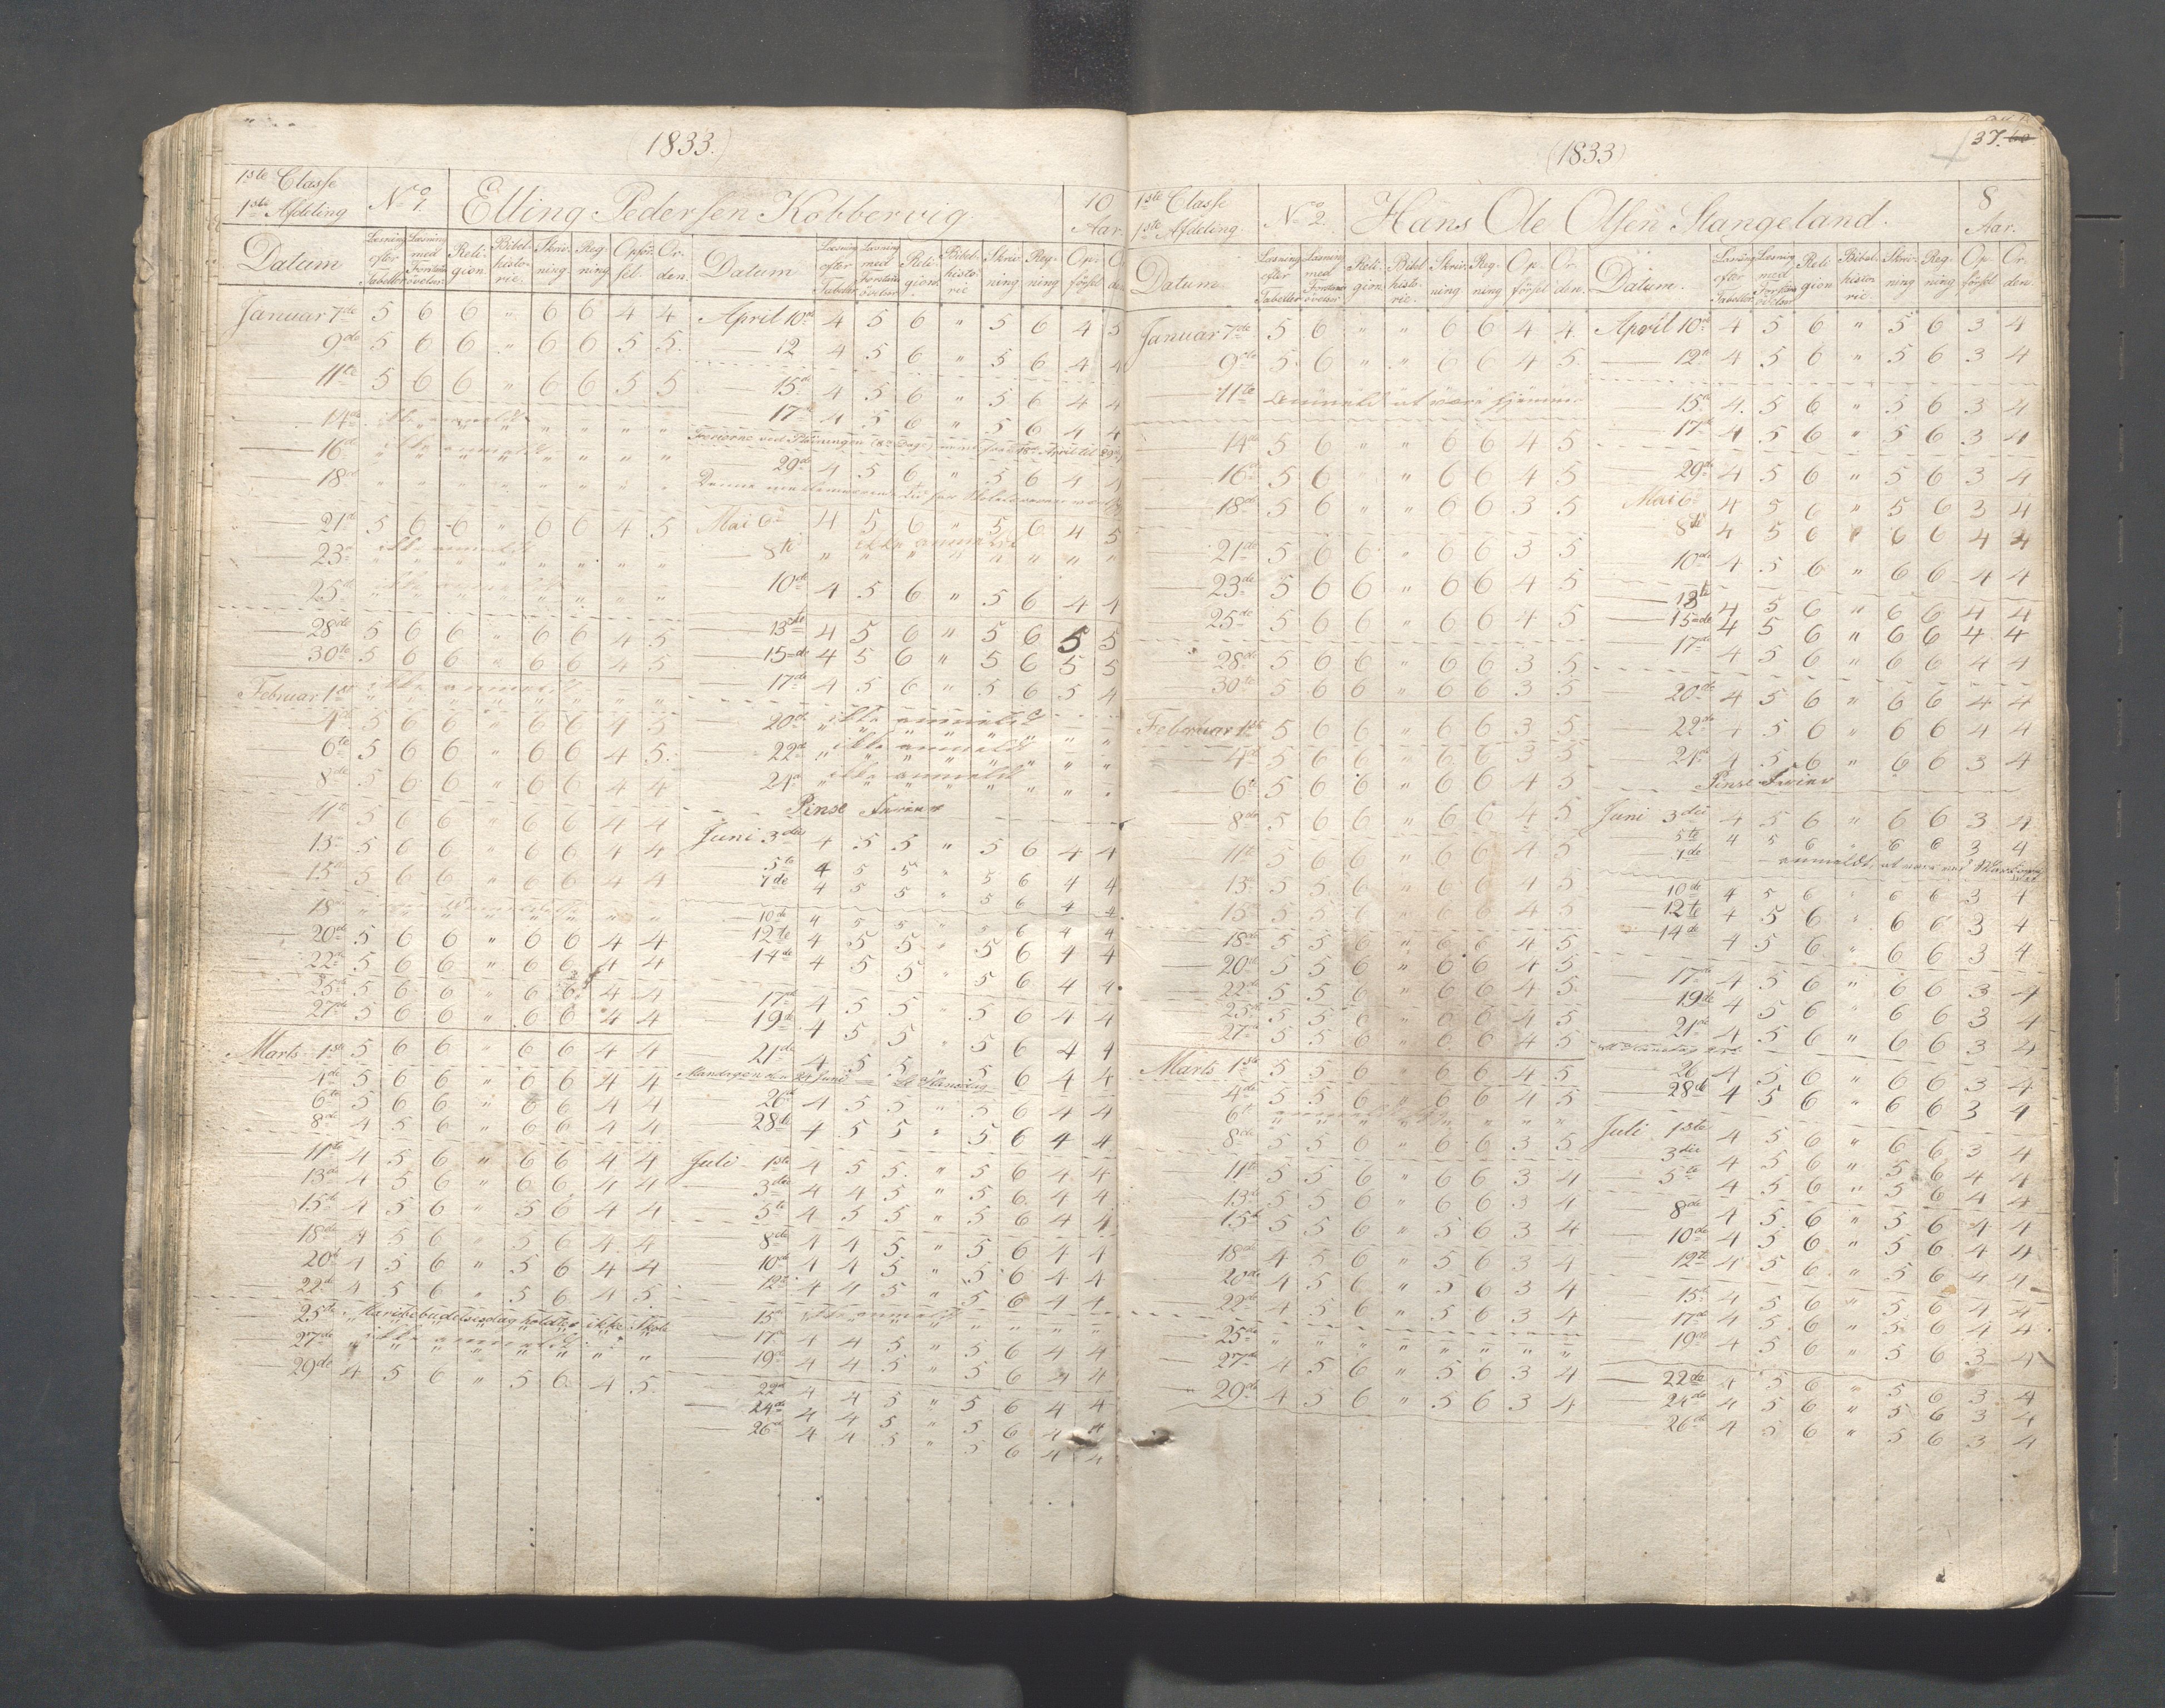 (1833.)
1ste Classe
1ste Afdeling
No 1.
Elling Pedersen Kobbervig
10 Aar.
Datum
Læsning efter Tabeller
Læsning med Forstandsøvelser
Religion
Bibelhistorie.
Skrivning
Regning
Opførsel.
Orden.
Januar 7de 5 6 6 " 6 6 4 4
9de 5 6 6 " 6 6 5 5.
11te 5 6 6 " 6 6 5 5
14de ikke anmeldt
16de ikke anmeldt
18de " " " " " " " "
21de 5 6 6 " 6 6 4 5
23de ikke anmeldt
25de ikke anmeldt
28de 5 6 6 " 6 6 4 5
30te 5 6 6 " 6 6 4 5
Februar 1ste ikke anmeldt
4de 5 6 6 " 6 6 4 5
6te 5 6 6 " 6 6 4 5.
8de 5 6 6 " 6 6 4 4
11te 5 6 6 " 6 6 4 4
13de 5 6 6 " 6 6 4 4
15de 5 6 6 " 6 6 4 4
18de
20de 5 6 6 " 6 6 4 4
22de 5 6 6 " 6 6 4 4
25de 5 6 6 " 6 6 4 4
27de 5 6 6 " 6 6 4 4
Marts 1ste 5 6 6 " 6 6 4 4
4de 5 6 6 " 6 6 4 4
6te 5 6 6 " 6 6 4 4
8de 4 5 6 " 6 6 4 4
11te 4 5 6 " 6 6 4 4
13de 4 5 6 " 6 6 4 4
15de 4 5 6 " 5 6 4 4
18de 4 5 6 " 5 6 4 4
20de 4 5 6 " 5 6 4 4
22de 4 5 6 " 5 6 4 5.
25de Mariæbebudelsesdag holdtes ikke Skole
27de ikke anmeldt
29de 4 5 6 " 5 6 4 5
Datum
Læsning efter Tabeller
Læsning med Forstandsøvelser
Religion.
Bibelhistorie
Skrivning
Regning
Opførsel
April 10de 4 5 6 " 5 6 4 5
12 4 5 6 " 5 6 4 4
15de 4 5 6 " 5 6 4 4
17de 4 5 6 " 5 6 4 4
29de 4 5 6 " 5 6 4 4
Mai 6te 4 5 6 " 5 6 4 5
8de ikke anmeldt
10de 4 5 6 " 5 6 4 4
13de 4 5 6 " 5 6 5 5
15de 4 5 6 " 5 6 5 5
17de 4 5 6 " 5 6 5 4
20de ikke anmeldt
22de ikke anmeldt
24de ikke anmeldt
Pinse Ferien
Juni 3die 4 5 5 " 5 6 4 4
5te 4 5 5 " 5 6 4 4
7de 4 5 5 " 5 6 4 4
10de 4 5 5 " 5 6 4 4
12te 4 5 5 " 5 6 4 4
14de 4 5 5 " 5 6 4 4
17de 4 5 5 " 5 6 4 4
19de 4 5 5 " 5 6 4 4
21de 4 5 5 " 5 6 4 4
Mandagen den 24 Juni — St. Hansdag
26de 4 5 5 " 5 6 4 4
28de 4 5 5 " 5 6 4 4
Juli 1ste 4 5 5 " 5 6 4 4
3die 4 4 5 " 5 6 4 4
5te 4 5 5 " 5 6 4 4
8de 4 4 5 " 5 6 4 4
10de 4 4 5 " 5 6 4 4
12te 4 4 5 " 5 6 4 4
15de ikke anmeldt
17de 4 4 5 " 5 6 4 4
19de 4 4 5 " 5 6 4 4
22de 4 4 5 " 5 6 4 4
24de 4 4 5 " 5 6 4 4
26de 4 4 5 " 5 6 4 4
(1833)
37. 60
1ste Classe
1ste Afdeling
No 2.
Hans Ole Olsen Stangeland.
8 Aar.
Datum.
Læsning efter Tabeller
Læsning med Forstandsøvelser
Religion.
Bibelhistorie.
Skrivning
Regning
Opførsel
Orden.
Januar 7de 5 6 " " 6 6 4 4.
9de 5 6 " " 6 6 4 5
11te
14de 5 6 " " 6 6 4 5
16de 5 6 " " 6 6 4 5
18de 5 6 " " 6 6 3 5
21de 5 6 6 " 6 6 3 5
23de 5 6 6 " 6 6 4 5
25de 5 6 6 " 6 6 4 5
28de 5 6 6 " 6 6 3 5
30te 5 6 6 " 6 6 3 5
Februar 1ste 5 6 6 " 6 6 3 5
4de 5 6 6 " 6 6 3 5
6te 5 6 6 " 6 6 4 5
8de 5 6 6 " 6 6 4 5
11te 5 6 6 " 6 6 4 5
13. 5 5 6 " 6 6 4 5
15 5 5 6 " 6 6 4 5
18de 5 5 6 " 6 6 4 5
20de 5 5 6 " 6 6 4 5
22de 5 5 6 " 6 6 4 5
25de 5 5 6 " 6 6 4 5
27de 5 5 6 " 6 6 4 5
Marts 1ste 5 5 6 " 6 6 4 5
4de 5 5 6 " 6 6 4 5
6te
8de 5 5 6 " 6 6 3 5
11te 5 5 6 " 6 6 3 4
13de 5 5 6 " 6 6 3 4
15de 5 5 6 " 5 6 3 4
18de 4 5 6 " 5 6 3 4
20de 4 5 6 " 5 6 3 4
22de 4 5 6 " 5 6 3 4
25de " " " " " " " "
27de 4 5 6 " 5 6 3 4
29de 4 5 6 " 5 6 3 4
Datum.
Læsning efter Tabeller
Læsning med Forstandsøvelser
Religion
Bibelhistorie.
Skrivning
Regning
Opførsel
Orden.
April 10de 4 5 6 " 5 6 3 4
12te 4 5 6 " 5 6 3 4
15de 4. 5 6 " 5 6 3 4
17de 4 5 6 " 5 6 3 4
29de 4 5 6 " 5 6 3 4
Mai 6te 4 5 6 " 5 6 3 4
8de 4 5 6 " 6 6 4 4
10de 4 5 6 " 6 6 4 4
13te 4 5 6 " 6 6 4 4
15de 4 5 6 " 6 6 4 4
17de 4 5 6 " 6 6 4 4
20de 4 5 6 " 6 6 4 4
22de 4 5 6 " 6 6 4 4
24de 4 5 6 " 6 6 3 4
Pinse Ferien
Juni 3die 4 5 6 " 6 6 3 4
5te 4 5 6 " 6 6 3 4
7de anmeldt, at være ved
10de 4 5 6 " 6 6 3 4
12te 4 5 6 " 6 6 3 4
14de 4 5 6 " 6 6 3 4
17de 4 5 6 " 6 6 3 4
19de 4 5 6 " 6 6 3 4
21de 4 5 6 " 6 6 3 4
26 4 5 6 " 6 6 3 4
28de 4 5 6 " 6 6 3 4
Juli 1ste 4 5 6 " 6 6 3 4
3die 4 5 6 " 5 6 4 4
5te 4 5 6 " 5 6 4 4
8de 4 5 6 " 5 6 4 4
10de 4 5 6 " 5 6 4 4
12te 4 5 6 " 5 6 4 4
15de 4 5 6 " 5 6 4 4
17de 4 5 6 " 5 6 4 4
19de 4 5 6 " 5 6 3 4
22de 4 5 6 " 5 6 3 4
24de 4 5 6 " 5 6 3 4
26de 4 5 6 " 5 6 3 4